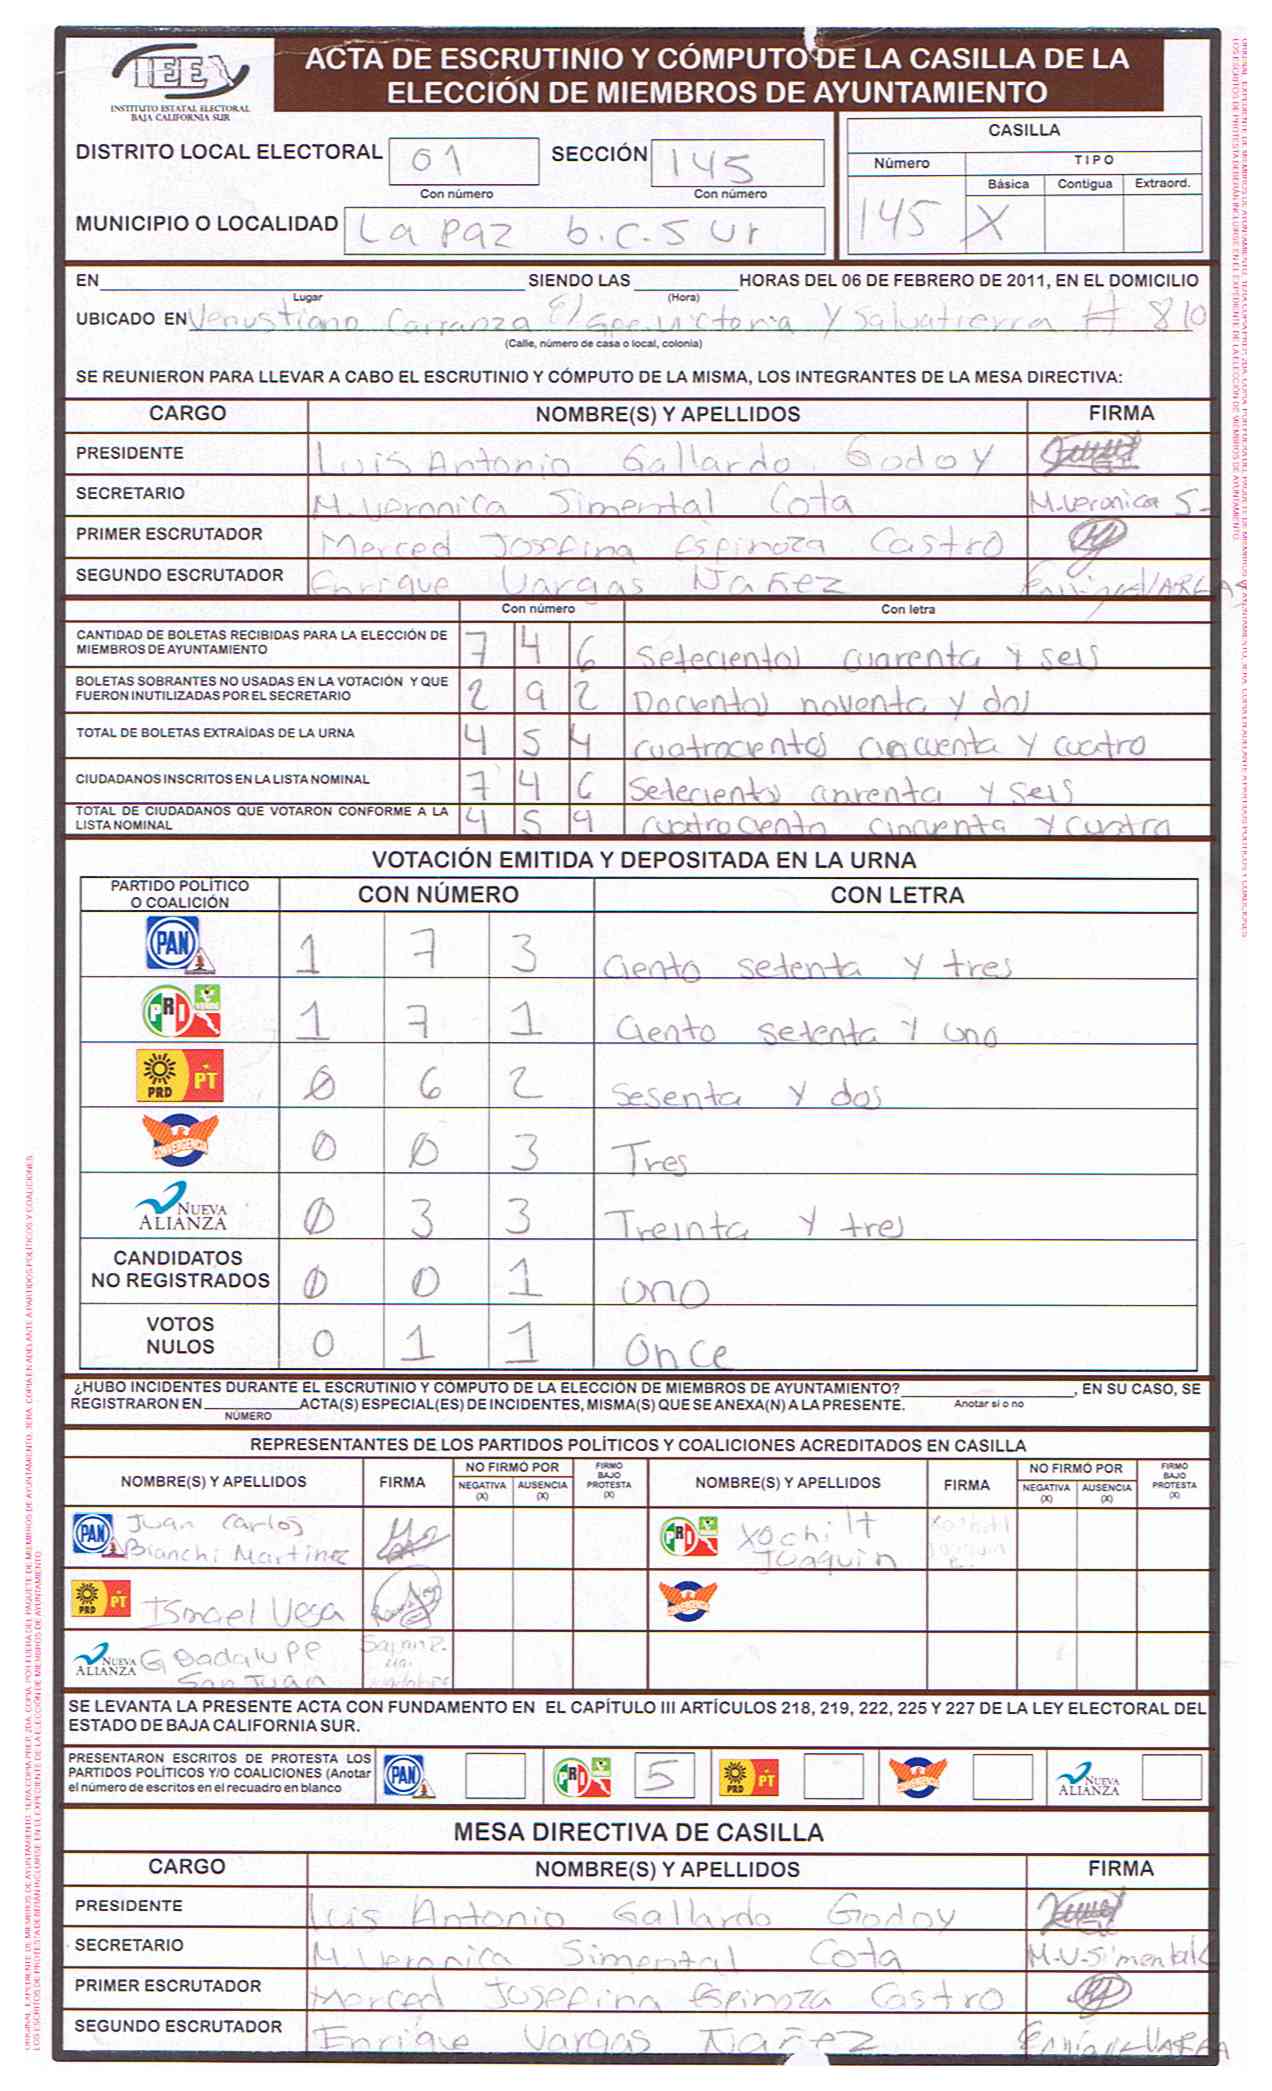 IEEA
INSTITUTO ESTATAL ELECTORAL
BAJA CALIFORNIA SUR
ACTA DE ESCRUTINIO Y CÓMPUTO DE LA CASILLA DE LA
ELECCIÓN DE MIEMBROS DE AYUNTAMIENTO
DISTRITO LOCAL ELECTORAL 01 SECCIÓN 145
Con número Con número
MUNICIPIO O LOCALIDAD La Paz b.c.sur
CASILLA
Número TIPO
Básica Contigua Extraord.
145 X
EN SIENDO LAS HORAS DEL 06 DE FEBRERO DE 2011, EN EL DOMICILIO
Lugar (Hora)
UBICADO EN Venustiano Carranza e/ Gpe. Victoria y Salvatierra # 810
(Calle, número de casa o local, colonia)
SE REUNIERON PARA LLEVAR A CABO EL ESCRUTINIO Y CÓMPUTO DE LA MISMA, LOS INTEGRANTES DE LA MESA DIRECTIVA:
CARGO NOMBRE(S) Y APELLIDOS FIRMA
PRESIDENTE Luis Antonio Gallardo Godoy
SECRETARIO M. Veronica Simental Cota M. Veronica S-
PRIMER ESCRUTADOR Merced Josefina Espinoza Castro
SEGUNDO ESCRUTADOR Enrique Vargas Nañez
Con número Con letra
CANTIDAD DE BOLETAS RECIBIDAS PARA LA ELECCIÓN DE
MIEMBROS DE AYUNTAMIENTO 7 4 6 Setecientos cuarenta y seis
BOLETAS SOBRANTES NO USADAS EN LA VOTACIÓN Y QUE
FUERON INUTILIZADAS POR EL SECRETARIO 2 9 2 Docentos noventa y dos
TOTAL DE BOLETAS EXTRAÍDAS DE LA URNA 4 5 4 cuatrocientos cincuenta y cuatro
CIUDADANOS INSCRITOS EN LA LISTA NOMINAL 7 4 6 Setecientos y seis
TOTAL DE CIUDADANOS QUE VOTARON CONFORME A LA
LISTA NOMINAL 4 5 4 cuatrociento cincuenta y cuatro
VOTACIÓN EMITIDA Y DEPOSITADA EN LA URNA
PARTIDO POLÍTICO
O COALICIÓN CON NÚMERO CON LETRA
PAN 1 7 3 Ciento setenta y tres
PRI VERDE 1 7 1 Ciento setenta y uno
PRD PT 0 6 2 Sesenta y dos
CONVERGENCIA 0 0 3 Tres
NUEVA ALIANZA 0 3 3 Treinta y tres
CANDIDATOS
NO REGISTRADOS 0 0 1 uno
VOTOS
NULOS 0 1 1 Once
¿HUBO INCIDENTES DURANTE EL ESCRUTINIO Y CÓMPUTO DE LA ELECCIÓN DE MIEMBROS DE AYUNTAMIENTO? , EN SU CASO, SE
REGISTRARON EN ACTA(S) ESPECIAL(ES) DE INCIDENTES, MISMA(S) QUE SE ANEXA(N) A LA PRESENTE. Anotar si o no
NÚMERO
REPRESENTANTES DE LOS PARTIDOS POLÍTICOS Y COALICIONES ACREDITADOS EN CASILLA
NOMBRE(S) Y APELLIDOS FIRMA NO FIRMÓ POR NEGATIVA (X) AUSENCIA (X) FIRMO BAJO PROTESTA (X) NOMBRE(S) Y APELLIDOS FIRMA NO FIRMÓ POR NEGATIVA (X) AUSENCIA (X) FIRMO BAJO PROTESTA (X)
PAN Juan Carlos
Bianchi Martinez
PRI Xochilt
Joaquin
PRD PT Ismael Vega
CONVERGENCIA
NUEVA ALIANZA Guadalupe
San Juan
SE LEVANTA LA PRESENTE ACTA CON FUNDAMENTO EN EL CAPÍTULO III ARTÍCULOS 218, 219, 222, 225 Y 227 DE LA LEY ELECTORAL DEL
ESTADO DE BAJA CALIFORNIA SUR.
PRESENTARON ESCRITOS DE PROTESTA LOS
PARTIDOS POLÍTICOS Y/O COALICIONES (Anotar
el número de escritos en el recuadro en blanco
PAN PRI 5 PRD PT CONVERGENCIA NUEVA ALIANZA
MESA DIRECTIVA DE CASILLA
CARGO NOMBRE(S) Y APELLIDOS FIRMA
PRESIDENTE Luis Antonio Gallardo Godoy
SECRETARIO M. Veronica Simental Cota M.V.Simental C
PRIMER ESCRUTADOR Merced Josefina Espinoza Castro
SEGUNDO ESCRUTADOR Enrique Vargas Nañez